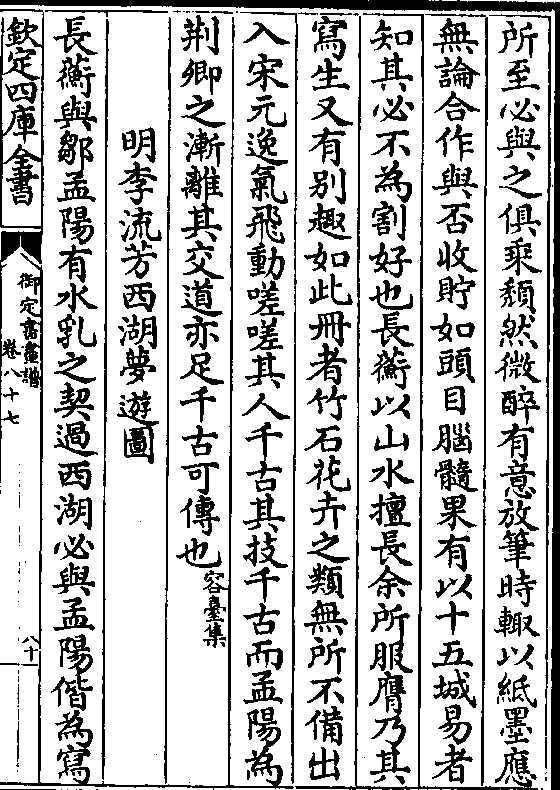 所至必與之俱乗頹然微醉有意放筆時輙以紙墨應
無論合作與否收貯如頭目腦髓果有以十五城易者
知其必不為割好也長蘅以山水擅長余所服膺乃其
寫生又有别趣如此冊者竹石花卉之類無所不備出
入宋元逸氣飛動嗟嗟其人千古其技千古而孟陽為
荆卿之漸離其交道亦足千古可傳也容臺集
明李流芳西湖夢遊圖
長蘅與鄒孟陽有水乳之契過西湖必與孟陽偕為寫
欽定四庫全書
御定書畫譜
卷八十七
八十